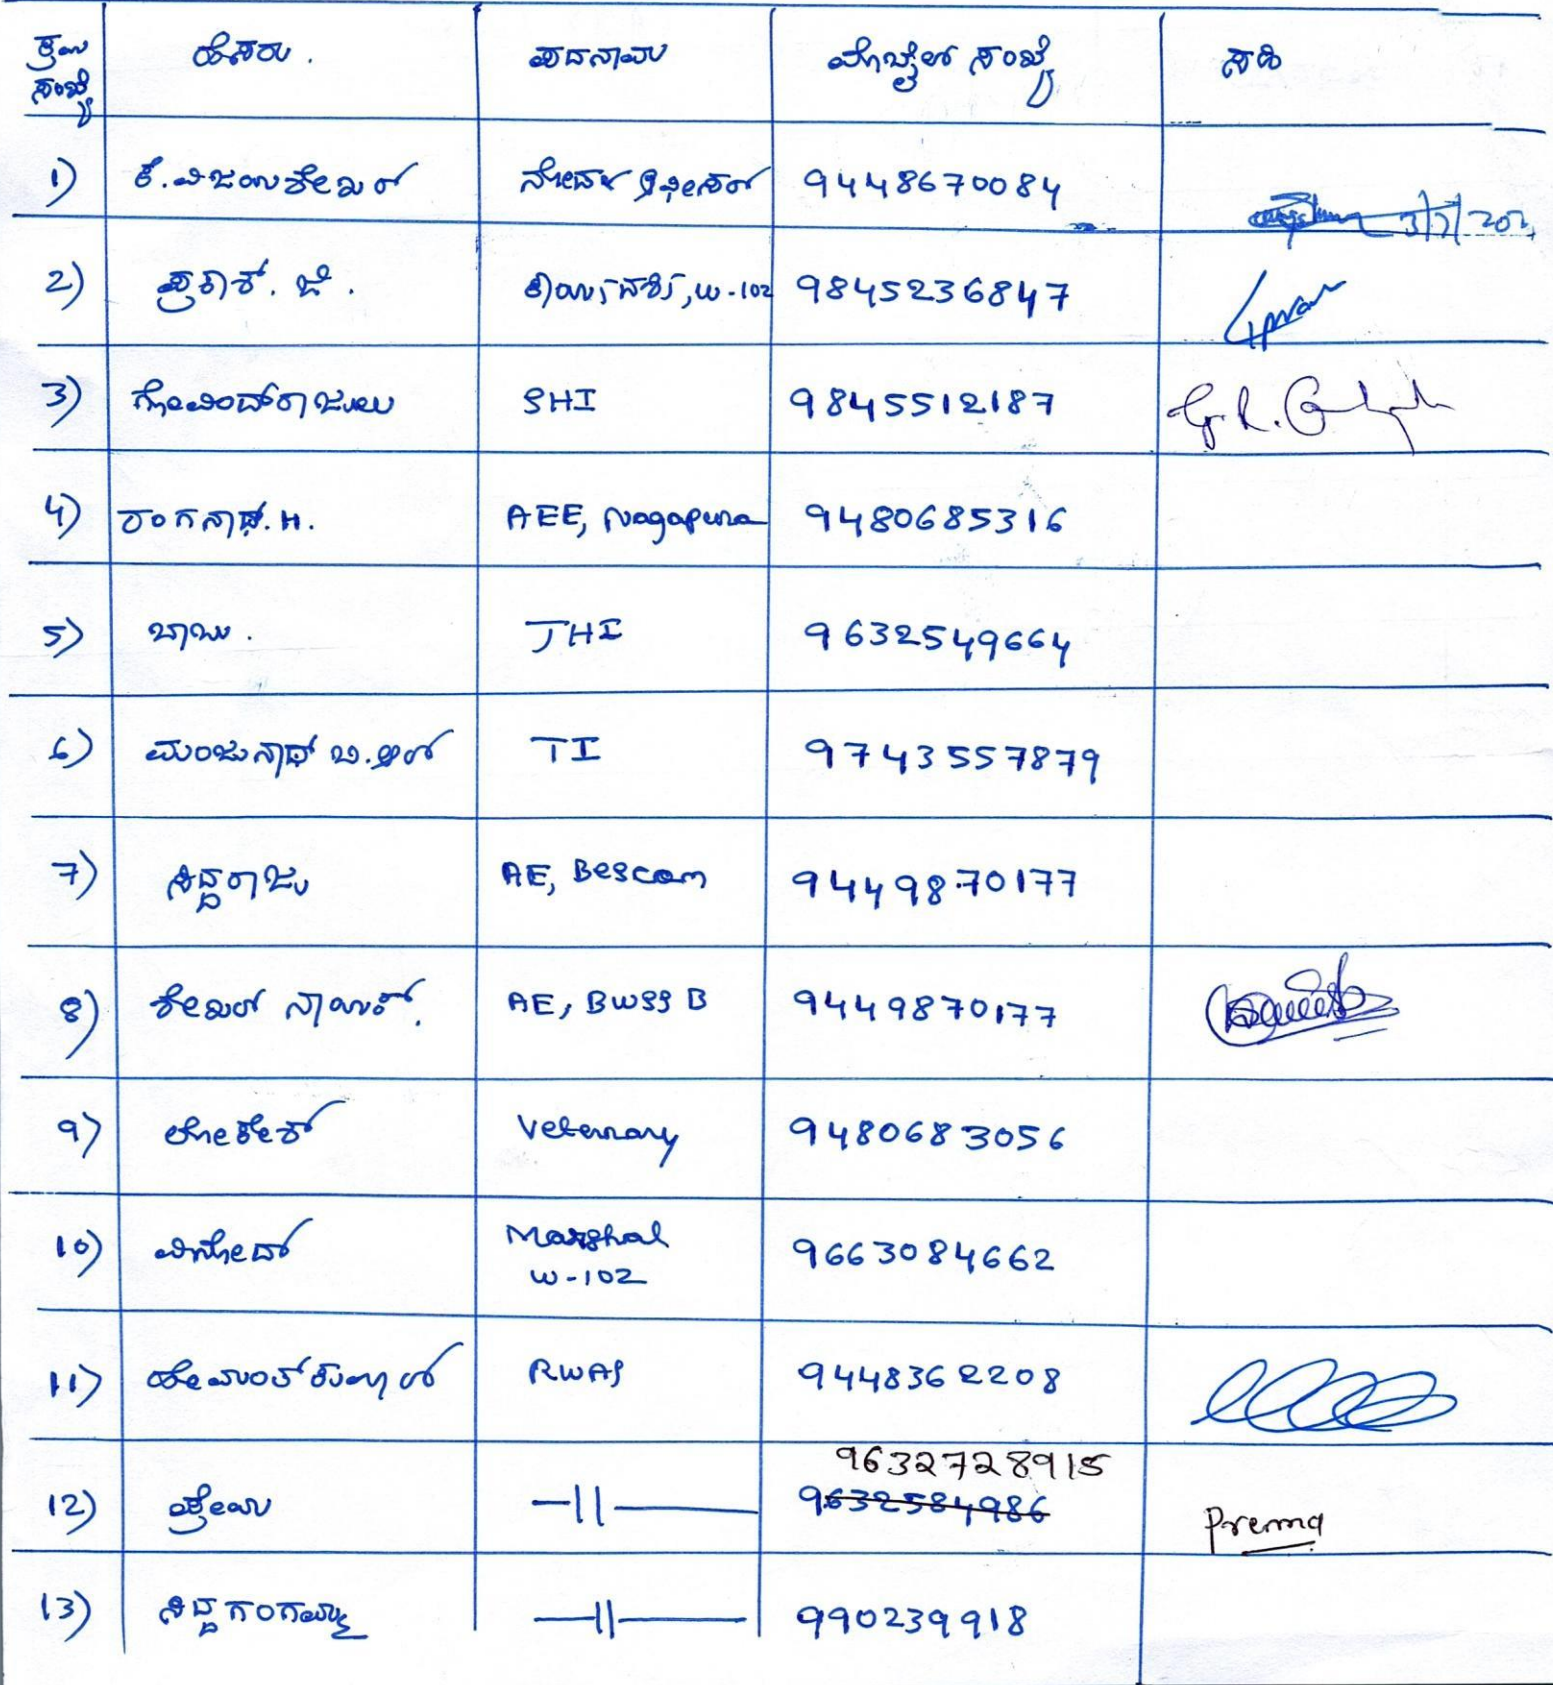 ಕ್ರಮ ಸಂಖ್ಯೆ ಹೆಸರು. ಪದನಾಮ ಮೊಬೈಲ್ ಸಂಖ್ಯೆ ಸಹಿ
1) ಕೆ.ವಿಜಯಶೇಖರ್ ನೋಡಲ್ ಆಫೀಸರ್ 9448670084
2) ಪ್ರಕಾಶ್. ಜಿ. ಕಾರ್ಯದರ್ಶಿ, W-102 9845236847
3) ಗೋವಿಂದ್‌ರಾಜುಲು SHI 9845512187
4) ರಂಗನಾಥ್. H. AEE, Nagapura 9480685316
5) ಬಾಬು. JHI 9632549664
6) ಮಂಜುನಾಥ್ ಬಿ.ಆರ್ TI 9743557879
7) ಸಿದ್ದರಾಜು AE, Bescom 9449870177
8) ಶೇಖರ್ ನಾಯಕ್. AE, BWSSB 9449870177
9) ಲೋಕೇಶ್ Veternary 9480683056
10) ವಿನೋದ್ Marshal W-102 9663084662
11) ಹೇಮಂತ್ ಕುಮಾರ್ RWAS 9448362208
9632728915
12) ಪ್ರೇಮ —||— 9632584986 Prema
13) ಸಿದ್ದಗಂಗಮ್ಮ —||— 990239918